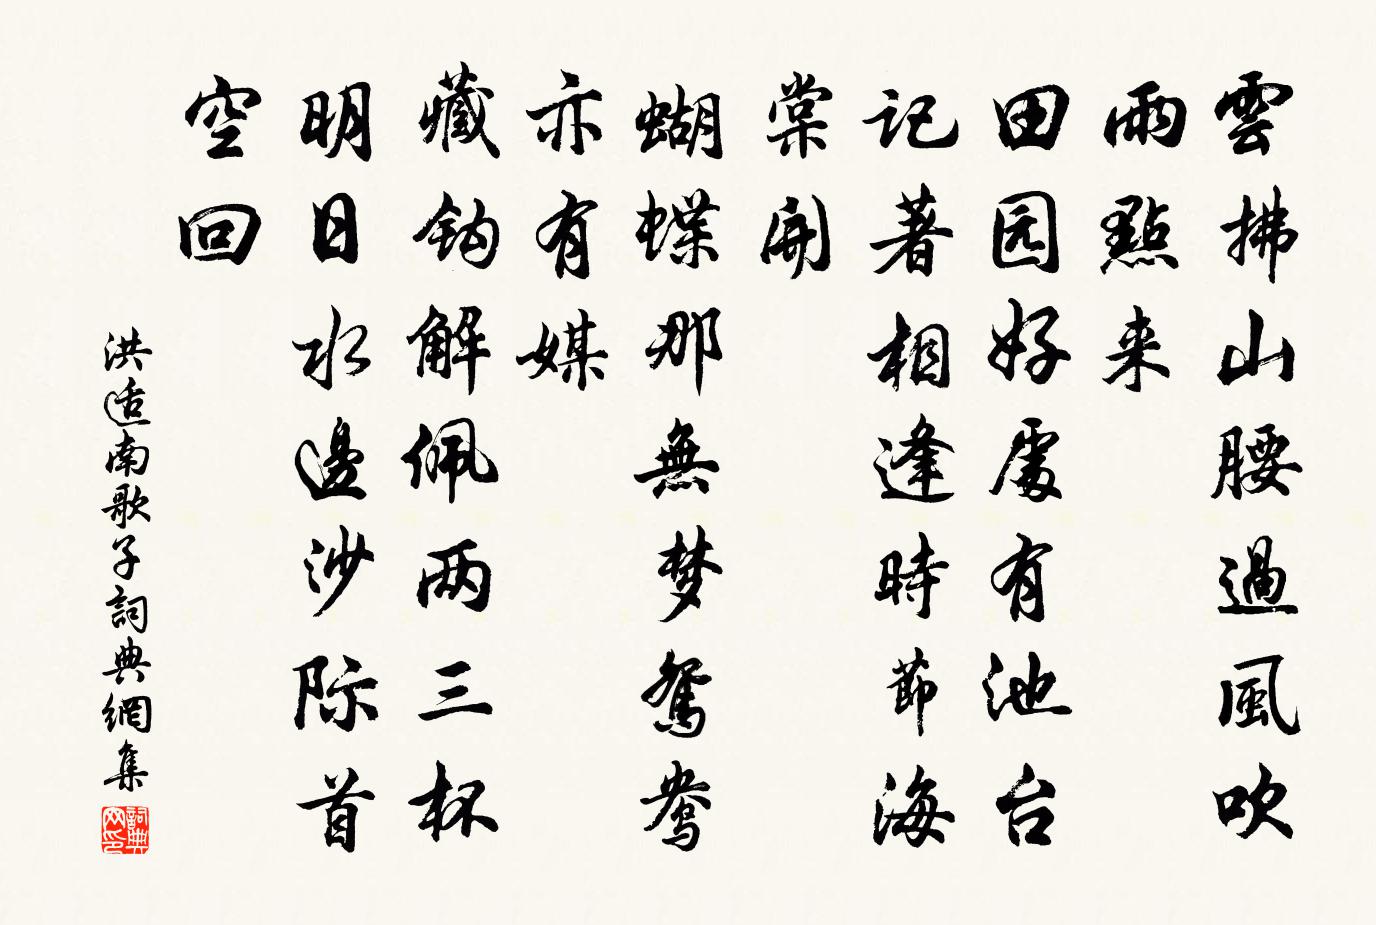 雲拂山腰過風吹
雨點来
田园好處有池台
記著相逢時節海
棠開
蝴蝶那無梦鴛鴦
亦有媒
藏钩解佩两三杯
明日水邊沙际首
空回
洪适南歌子詞典網集
詞典网印